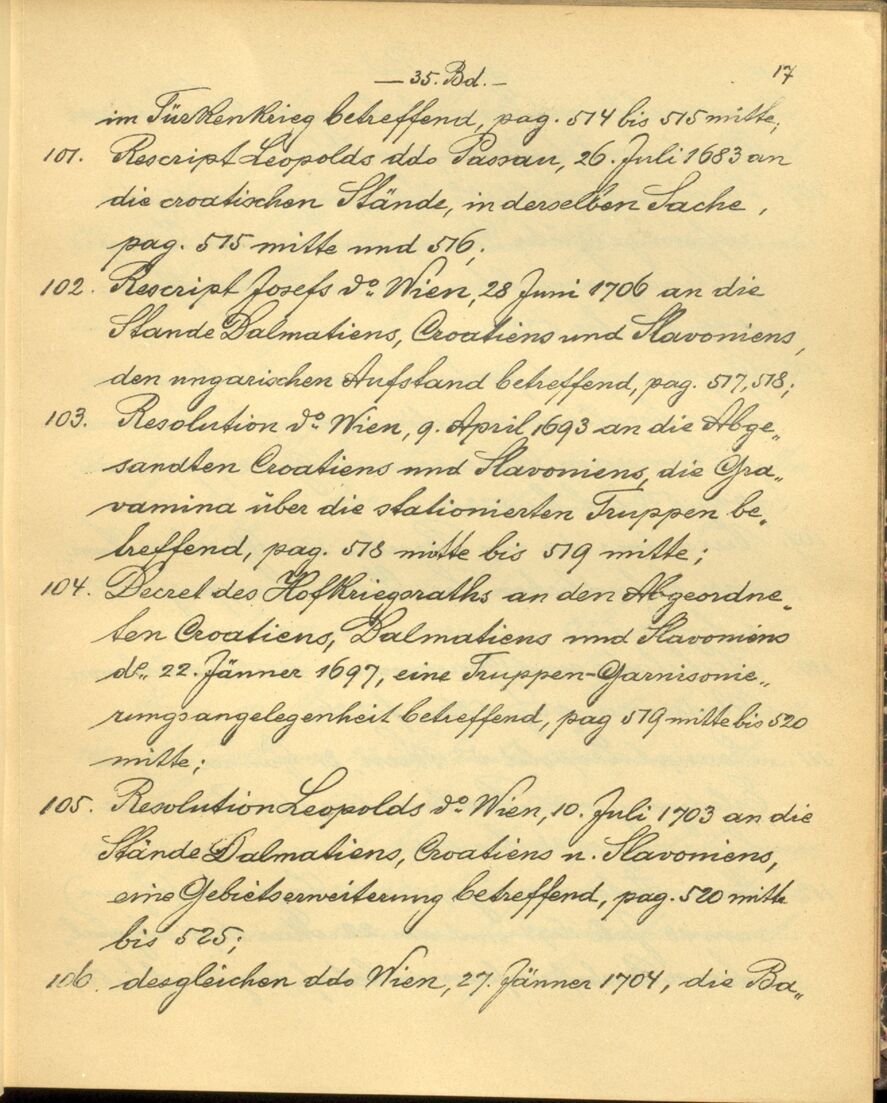 — 35. Bd. —
17
im Türkenkrieg betreffend, pag. 514 bis 515 mitte;
101. Rescript Leopolds ddo Passau, 26. Juli 1683 an
die croatischen Stände, in derselben Sache,
pag. 515 mitte und 516;
102. Rescript Josefs do. Wien, 28 Juni 1706 an die
Stande Dalmatiens, Croatiens und Slavoniens,
den ungarischen Aufstand betreffend, pag. 517, 518;
103. Resolution do. Wien, 9. April 1693 an die Abge„
sandten Croatiens und Slavoniens, die Gra„
vamina über die stationierten Truppen be„
treffend, pag. 518 mitte bis 519 mitte;
104. Decret des Hofkriegsraths an den Abgeordne„
ten Croatiens, Dalmatiens und Slavoniens
do. 22. Jänner 1697, eine Truppen-Garnisonie„
rungsangelegenheit betreffend, pag 519 mitte bis 520
mitte;
105. Resolution Leopolds do. Wien, 10. Juli 1703 an die
Stände Dalmatiens, Croatiens u. Slavoniens,
eine Gebietserweiterung betreffend, pag. 520 mitte
bis 525;
106. desgleichen ddo Wien, 27. Jänner 1704, die Ba„